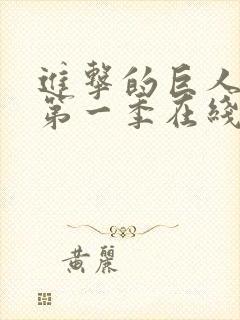 進擊的巨人
第一季在綫
黃麗